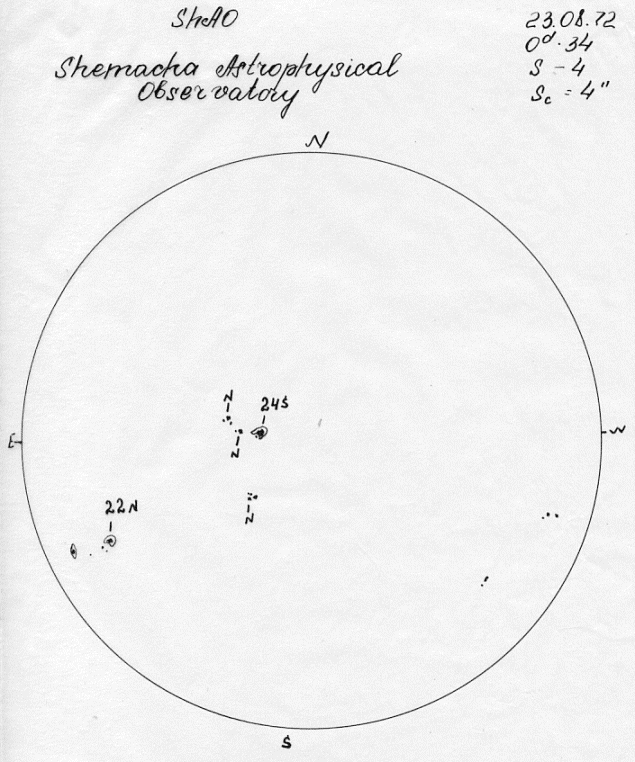 ShAO
23.08.72
0d.34
Shemacha Astrophysical
Observatory
S - 4
Sc = 4"
N
N
24S
E
W
N
N
22N
S